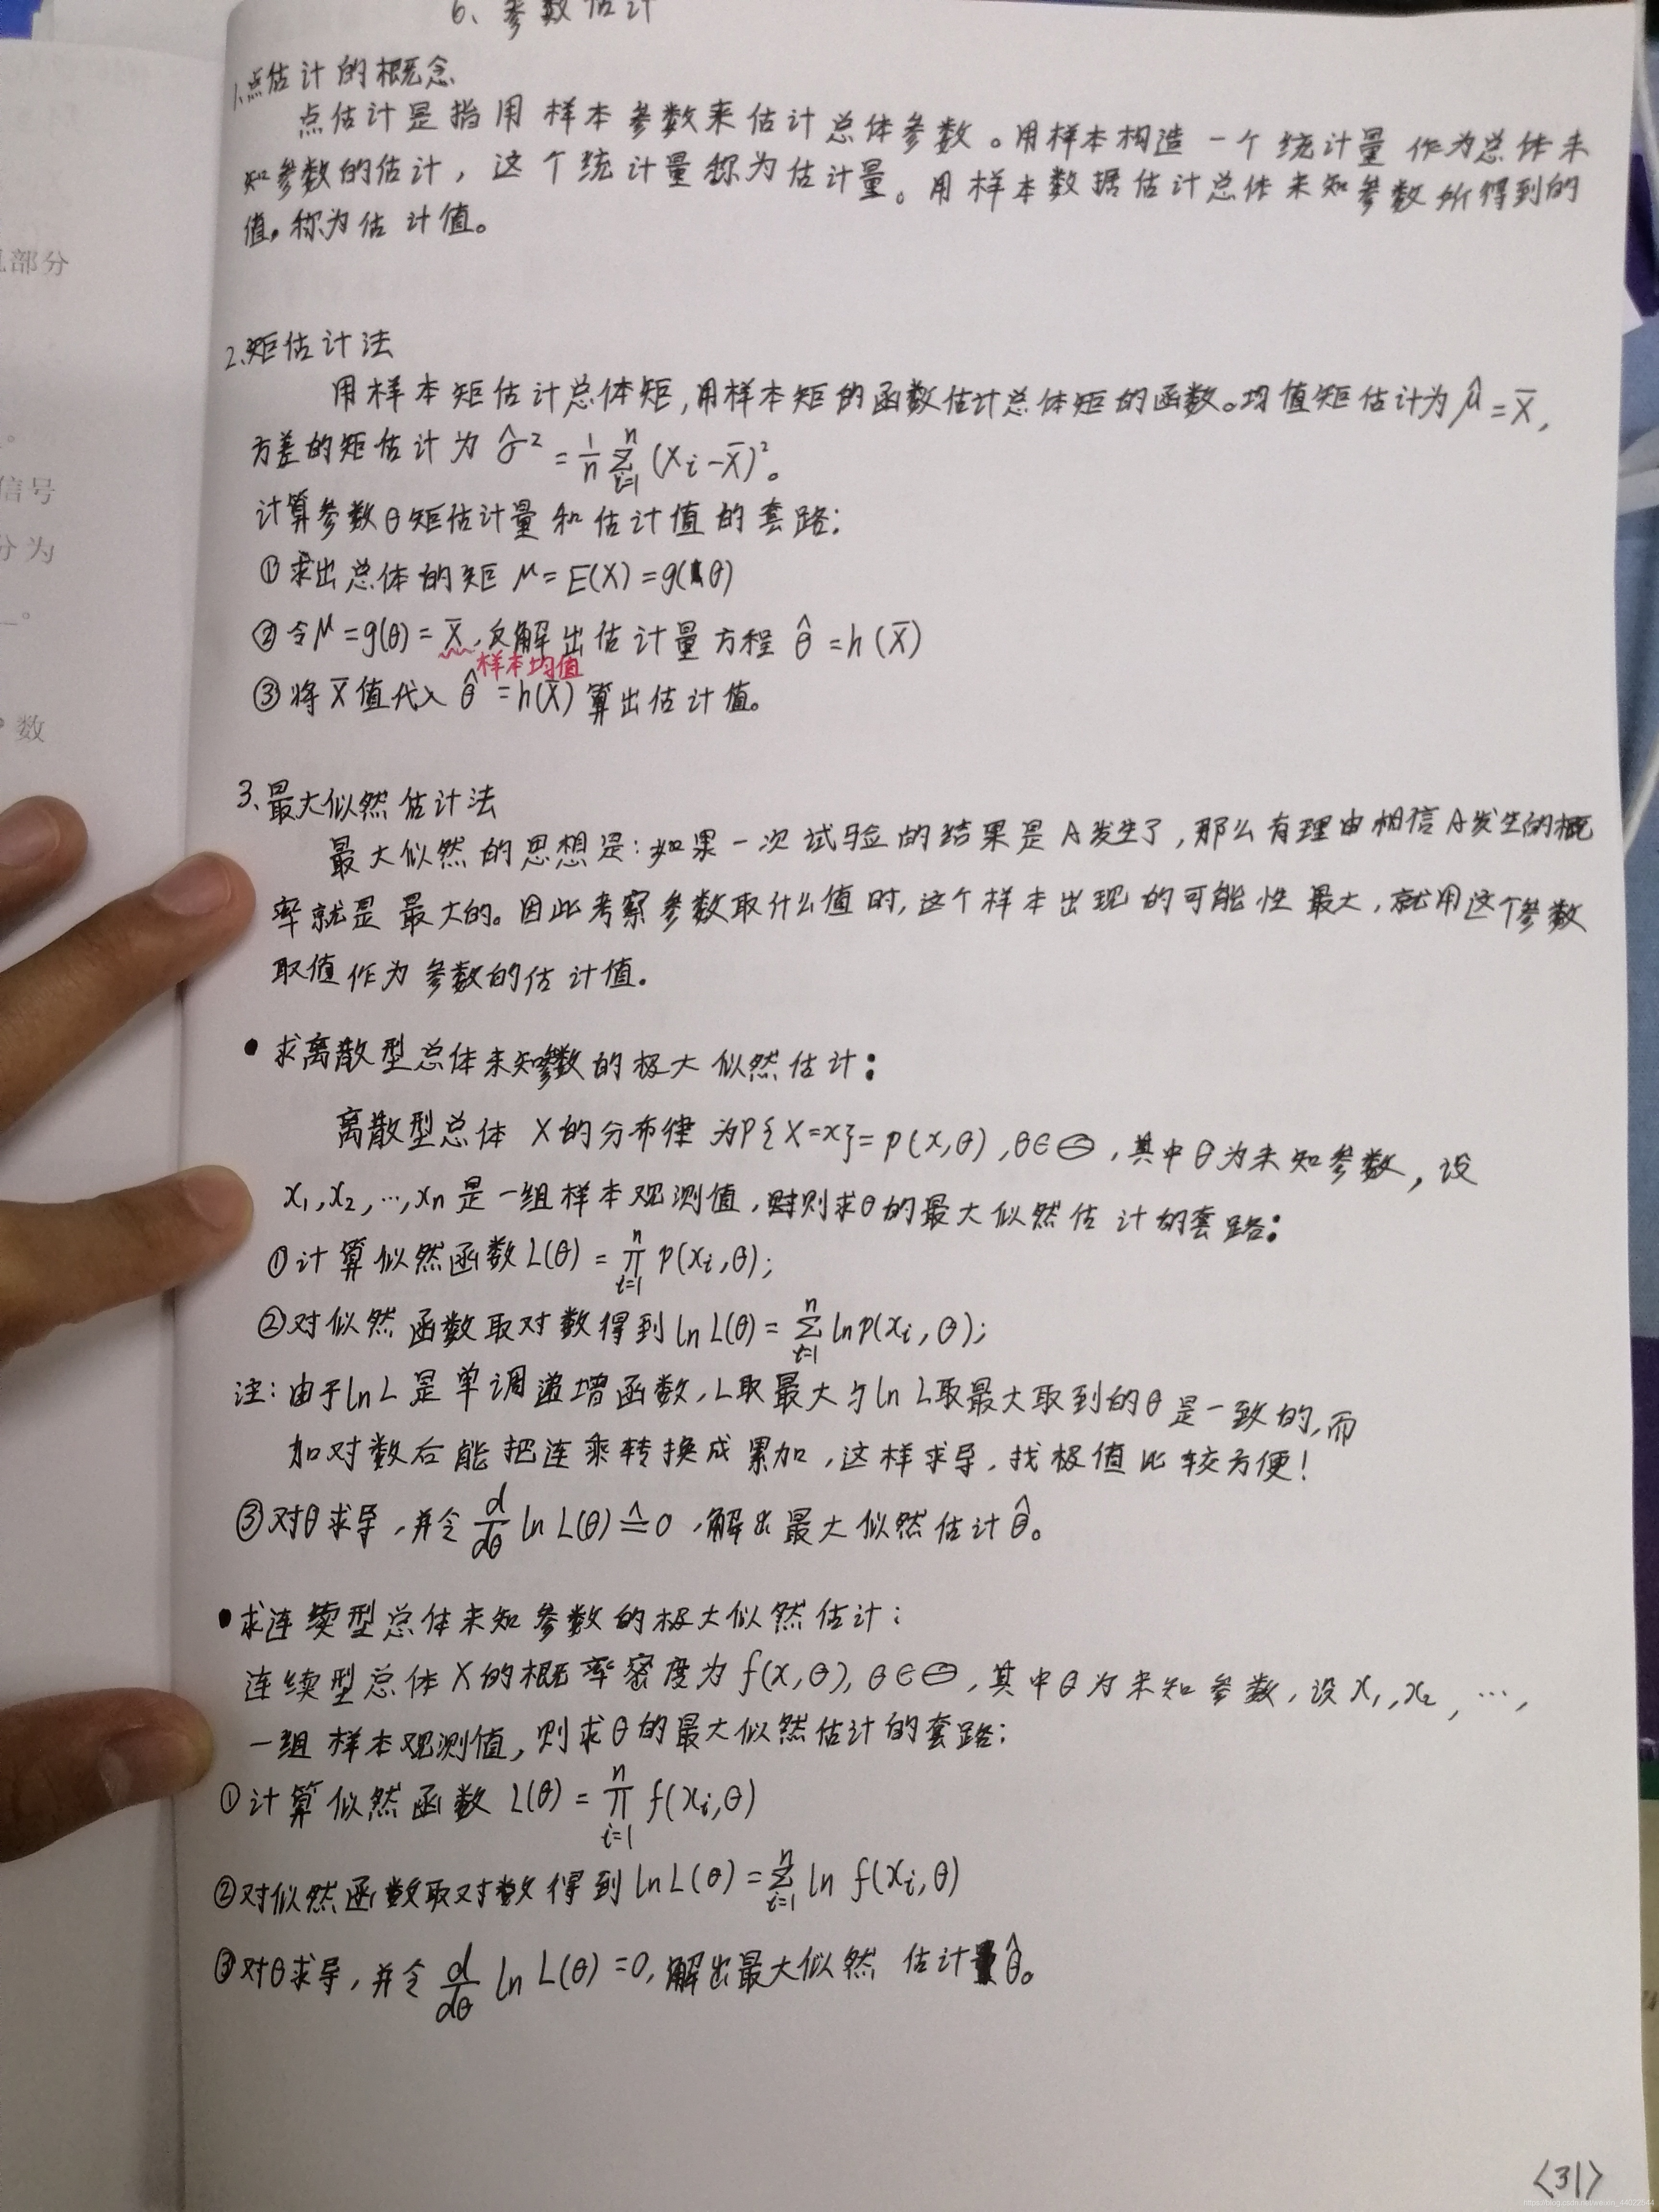 6、参数估计
1、点估计的概念
点估计是指用样本参数来估计总体参数。用样本构造一个统计量作为总体未
知参数的估计，这个统计量称为估计量。用样本数据估计总体未知参数所得到的
值。称为估计值。
2、矩估计法
用样本矩估计总体矩,用样本矩的函数估计总体矩的函数。均值矩估计为 μ̂ = X̄,
方差的矩估计为 σ̂² = 1/n ∑ᵢ₌₁ⁿ (Xi - X̄)²。
计算参数θ矩估计量和估计值的套路:
①求出总体的矩 μ = E(X) = g(θ)
②令μ = g(θ) = X̄,反解出估计量方程 θ̂ = h(X̄)
样本均值
③将X̄值代入 θ̂ = h(X̄) 算出估计值。
3、最大似然估计法
最大似然的思想是:如果一次试验的结果是A发生了,那么有理由相信A发生的概
率就是最大的。因此考察参数取什么值时,这个样本出现的可能性最大,就用这个参数
取值作为参数的估计值.
• 求离散型总体未知参数的极大似然估计:
离散型总体 X的分布律为P{X=x} = p(x,θ),θ∈Θ,其中θ为未知参数,设
x₁,x₂,…,xn是一组样本观测值,则求θ的最大似然估计的套路:
①计算似然函数L(θ) = ∏ᵢ₌₁ⁿ p(xi,θ);
②对似然函数取对数得到 ln L(θ) = ∑ᵢ₌₁ⁿ ln p(xi,θ);
注:由于ln L 是单调递增函数,L取最大与ln L取最大取到的θ是一致的,而
加对数后能把连乘转换成累加,这样求导,找极值比较方便!
③对θ求导,并令 d/dθ ln L(θ) ≙ 0,解出最大似然估计θ̂。
• 求连续型总体未知参数的极大似然估计:
连续型总体X的概率密度为f(x,θ),θ∈Θ,其中θ为未知参数,设x₁,x₂,…,
一组样本观测值,则求θ的最大似然估计的套路:
①计算似然函数 L(θ) = ∏ᵢ₌₁ⁿ f(xi,θ)
②对似然函数取对数得到 ln L(θ) = ∑ᵢ₌₁ⁿ ln f(xi,θ)
③对θ求导,并令 d/dθ ln L(θ) = 0,解出最大似然估计量θ̂。
<31>
部分
信号
分为
数